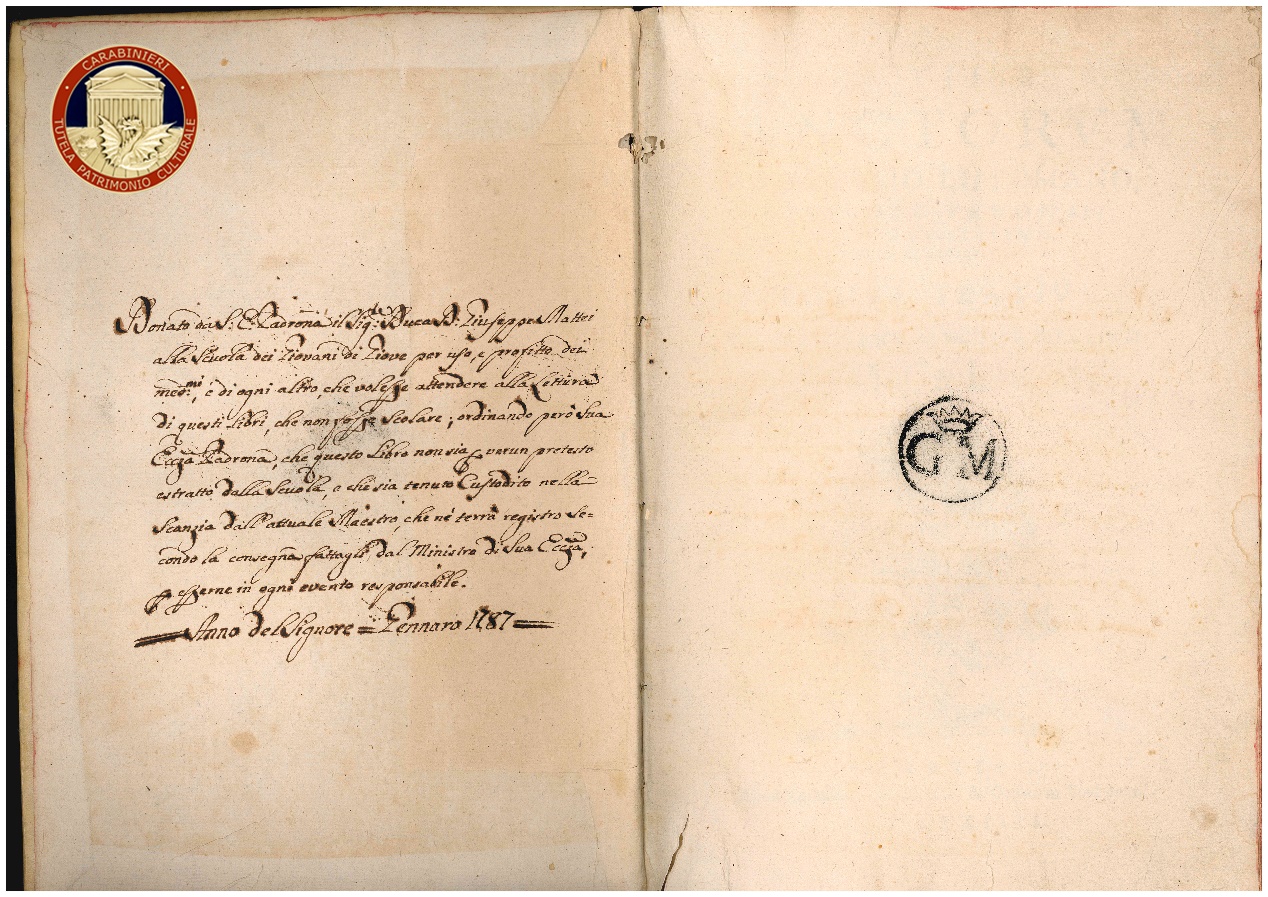 CARABINIERI
TUTELA PATRIMONIO CULTURALE
Donato da S: E: Padrona il Sig:re Duca D: Giuseppe Mattei
alla Scuola dei Giovani di Giove per uso, e profitto dei
med:mi, e di ogni altro, che volesse attendere alla Lettura
di questi Libri, che non fosse Scolare; ordinando però Sua
Eccza Padrona, che questo Libro non sia p verun pretesto
estratto dalla Scuola, e che sia tenuto Custodito nella
Scanzia dall'attuale Maestro, che ne terrà registro se=
condo la consegna fattagli dal Ministro di Sua Eccza,
p esserne in ogni evento responsabile.
Anno del Signore = Gennaro 1787
G M